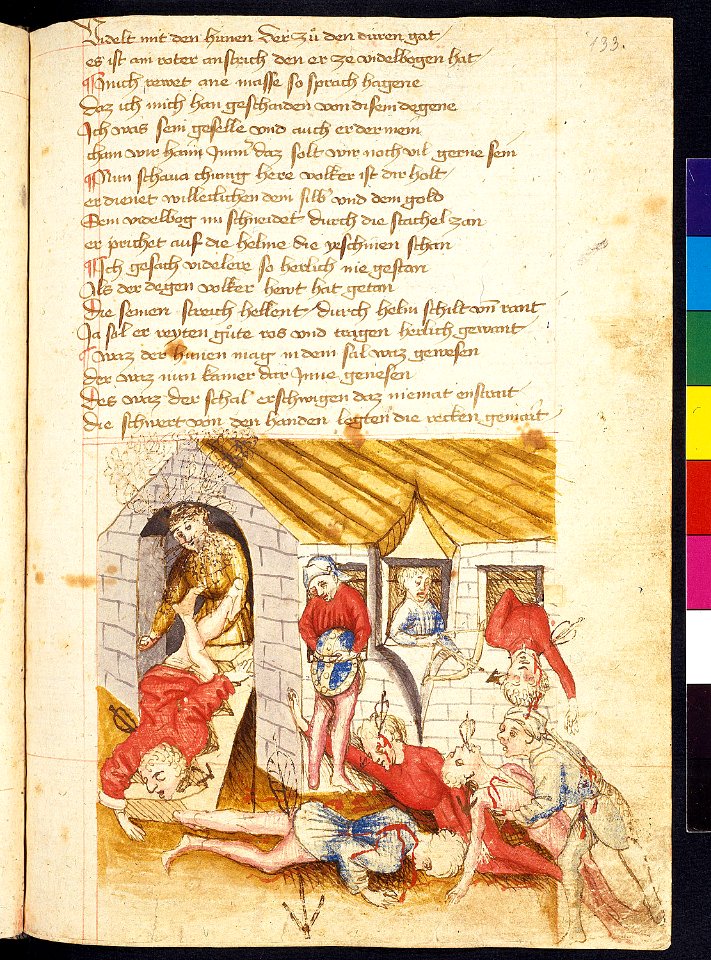 133.
Videlt mit den hunen der zů den düren gat
es ist am roter anstrich den er ze videlbogen hat
Mich rewet ane masse so sprach hagene
daz ich mich han geschaiden von disem degene
Ich was sein geselle vnd auch er der mein
cham wir haim ymm̄ daz solt wir noch vil gerne sein
Nun schawa chünig here volker ist dir holt
er dienet willeclichen dein silb̄ vnd dein gold
Sein videlbog im schneidet durch die stachel zan
er prichet auf die helme die yeschinen schan
Ich gesach videlere so herlich nie gestan
Als der degen volker hewt hat getan
Die seinen streich hellent durch helm schilt vn̄ rant
Ja sol er reyten gůte ros vnd tragen herlich gewant
waz der hunen mag in dem sal waz gewesen
der waz nun kainer dar Inne genesen
Des waz der schal erschwigen daz niemat enstrait
die schwert von den handen legten die recken gemait